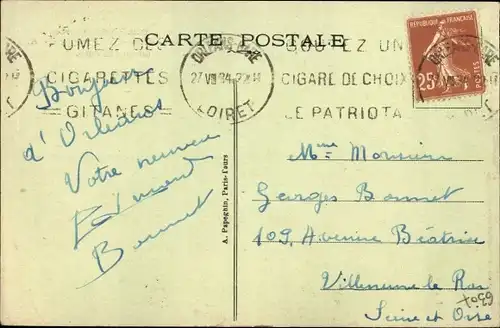 CARTE POSTALE
FUMEZ DES
CIGARETTES
GITANES
ORLEANS GARE
27 VII 34
LOIRET
GOUTEZ UN
CIGARE DE CHOIX
LE PATRIOTA
RÉPUBLIQUE FRANÇAISE
25c
POSTES
Bonjour
d'Orléans
Votre neveu
Edmond
Bonnet
A. Papeghin, Paris-Tours
Mme Monsieur
Georges Bonnet
109, Avenue Béatrix
Villeneuve le Roi
Seine et Oise